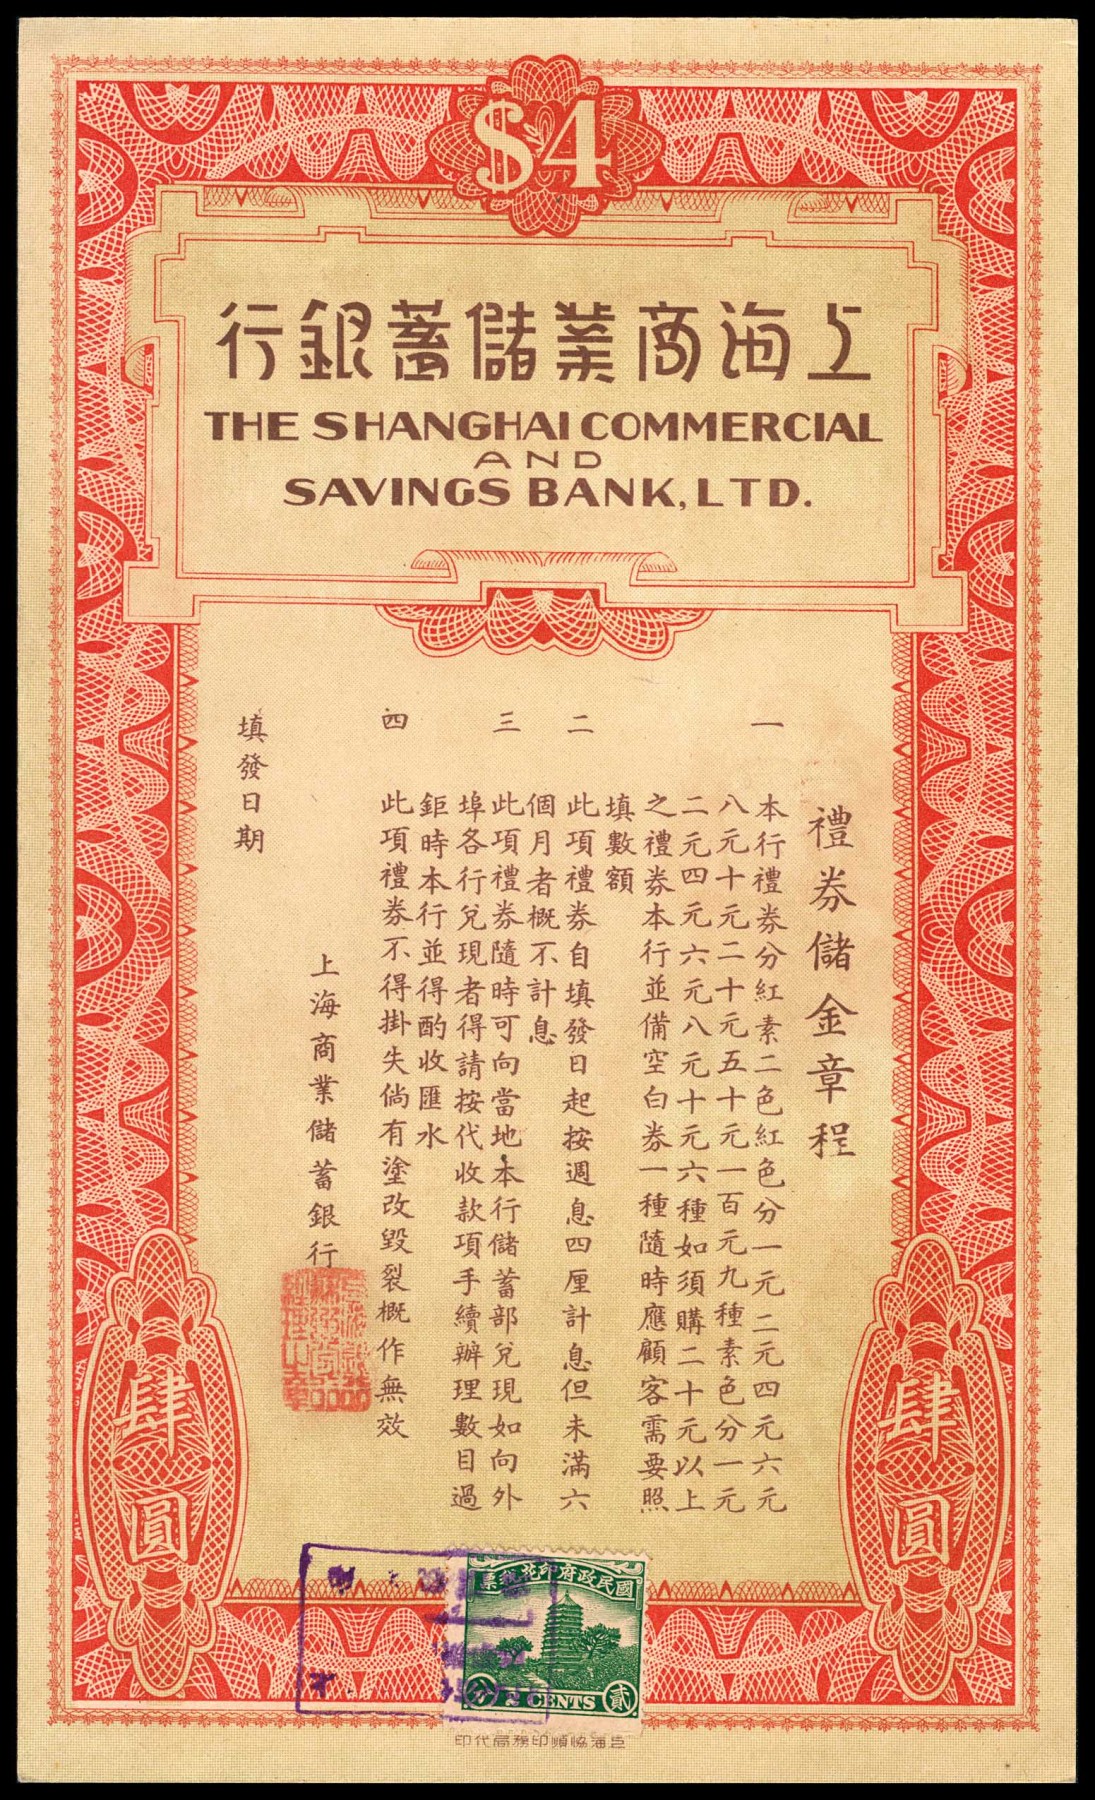 $4
上海商業儲蓄銀行
THE SHANGHAI COMMERCIAL
AND
SAVINGS BANK, LTD.
禮券儲金章程
一 本行禮券分紅素二色紅色分一元二元四元六元
八元十元二十元五十元一百元九種素色分一元
二元四元六元八元十元六種如須購二十元以上
之禮券本行並備空白券一種隨時應顧客需要照
填數額
二 此項禮券自填發日起按週息四厘計息但未滿六
個月者概不計息
三 此項禮券隨時可向當地本行儲蓄部兌現如向外
埠各行兌現者得請按代收款項手續辦理數目過
鉅時本行並得酌收匯水
四 此項禮券不得掛失倘有塗改毀裂概作無效
上海商業儲蓄銀行
填發日期
肆圓
肆圓
國民政府印花稅票
貳
2 CENTS
分